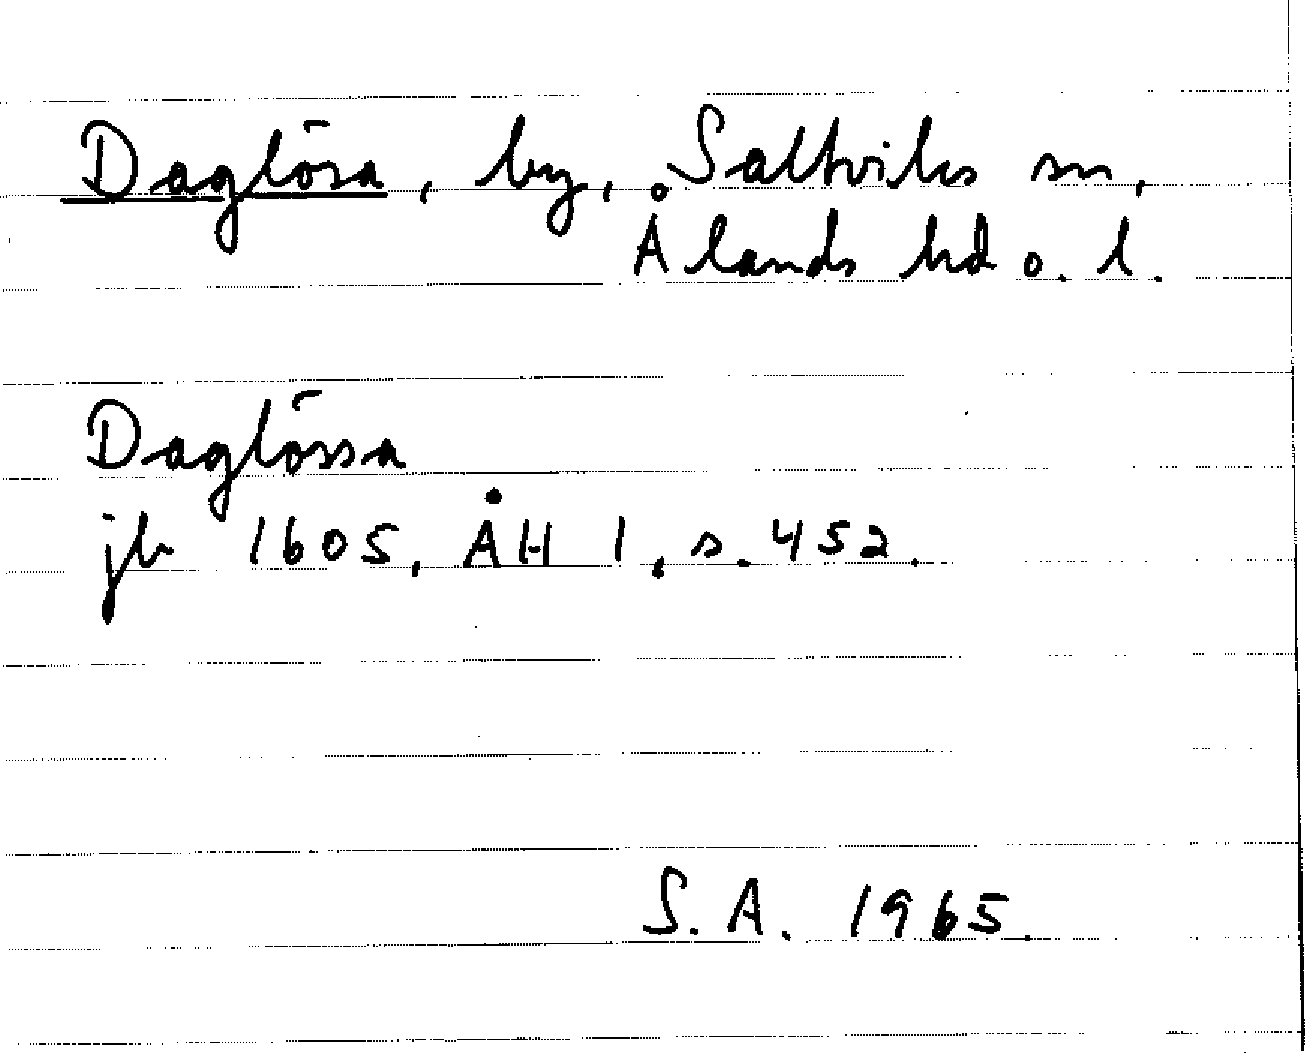 Daglösa, by, Saltviks sn,
Ålands hd o. l.
Daglössa
jb 1605, ÅH 1, s. 452.
S. A. 1965.